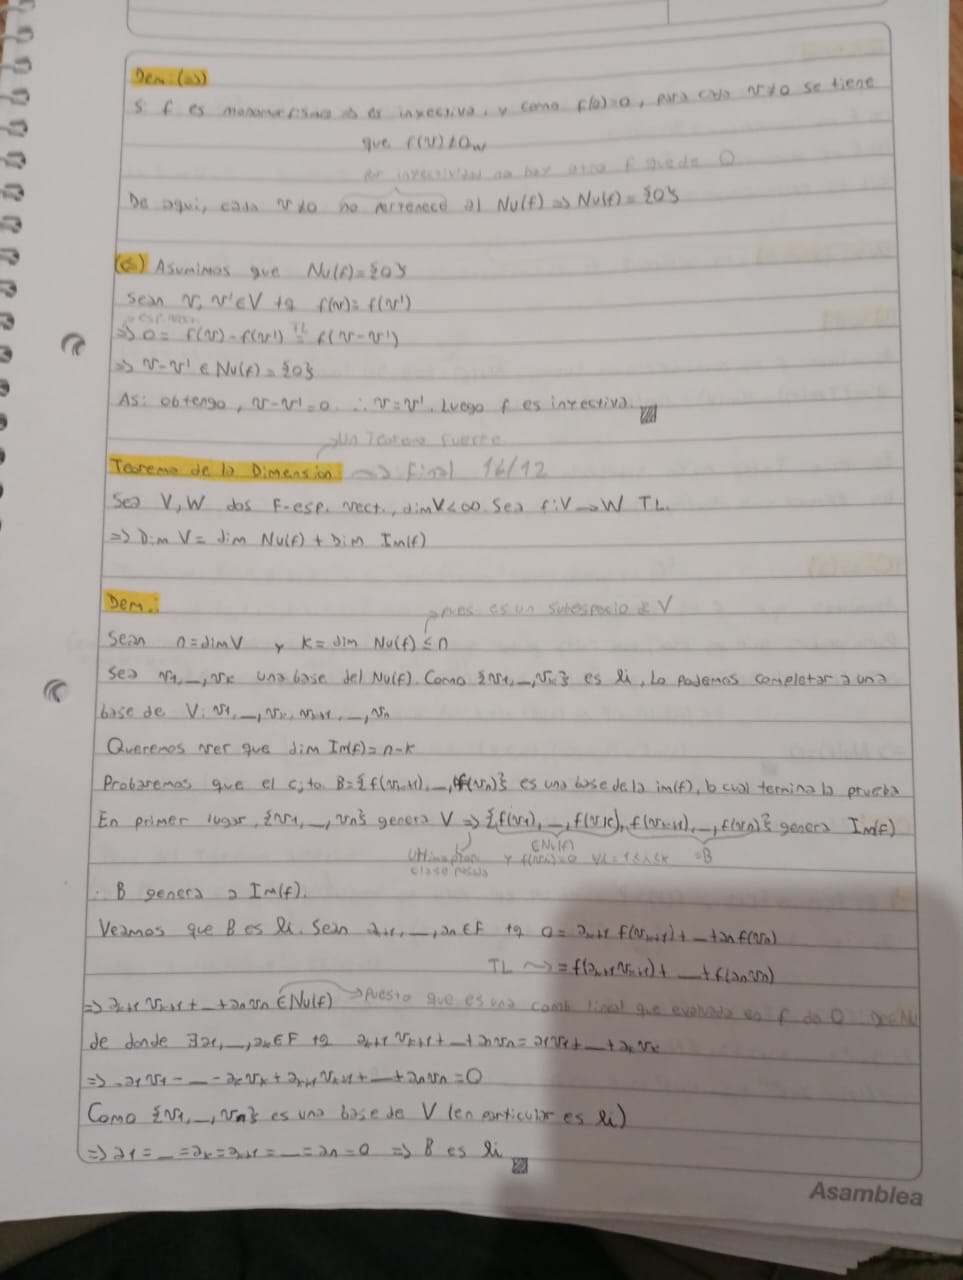 Dem: (=>)
Si f es monomorfismo => es inyectiva, y como f(0)=0, para cada v≠0 se tiene
que f(v)≠0w
por inyectividad no hay otro f que de 0
De aquí, cada v≠0 no pertenece al Nu(f) => Nu(f)={0}
(<=) Asumimos que Nu(f)={0}
Sean v, v'∈V tq f(v)=f(v')
=> 0 = f(v)-f(v') TL= f(v-v')
=> v-v' ∈ Nu(f)={0}
Asi obtengo, v-v'=0 ∴ v=v'. Luego f es inyectiva.
Un Teorema fuerte
Teorema de la Dimension ~> final 16/12
Sea V, W dos F-esp. vect., dimV<∞. Sea f:V->W TL.
=> Dim V = dim Nu(f) + Dim Im(f)
Dem.:
pues es un subespacio de V
Sean n=dimV y k=dim Nu(f) ≤ n
Sea v1,_,vk una base del Nu(f). Como {v1,_,vk} es li, lo podemos completar a una
base de V: v1,_,vk,vk+1,_,vn
Queremos ver que dim Im(f)=n-k
Probaremos que el cjto. B={f(vk+1),_,f(vn)} es una base de la im(f), lo cual termina la prueba
En primer lugar, {v1,_,vn} genera V => {f(v1),_,f(vk),f(vk+1),_,f(vn)} genera Im(f)
∈Nu(f) =B
clase pasada
∴ B genera a Im(f).
Veamos que B es li. Sean ak+1,_,an∈F tq 0=ak+1 f(vk+1)+_+an f(vn)
TL ~> =f(ak+1vk+1)+_+f(anvn)
=> ak+1vk+1+_+anvn ∈Nu(f) -> Puesto que es una comb lineal que evaluada en f da 0
de donde ∃a1,_,ak∈F tq ak+1vk+1+_+anvn=a1v1+_+akvk
=> -a1v1-_-akvk+ak+1vk+1+_+anvn=0
Como {v1,_,vn} es una base de V (en particular es li)
=> a1=_=ak=ak+1=_=an=0 => B es li
Asamblea